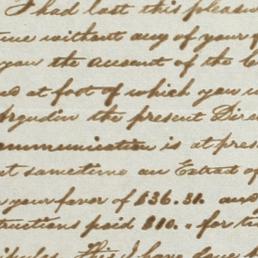 I had last this pleasure
time without any of your f
you the account of the C
and at foot of which you w
Argudin the present Dire
ommunication is at pres
t sometime an Extract of
n your favor of $36.31. and
tructions paid $10.. for tw
This I have